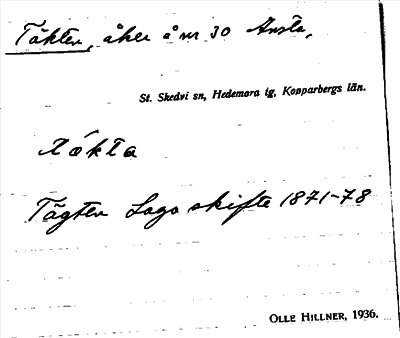 Täkten, åker å nr 30 Ansta,
St. Skedvi sn, Hedemora tg, Kopparbergs län.
tǽkta
Tägten Laga skifte 1871-78
OLLE HILLNER, 1936.